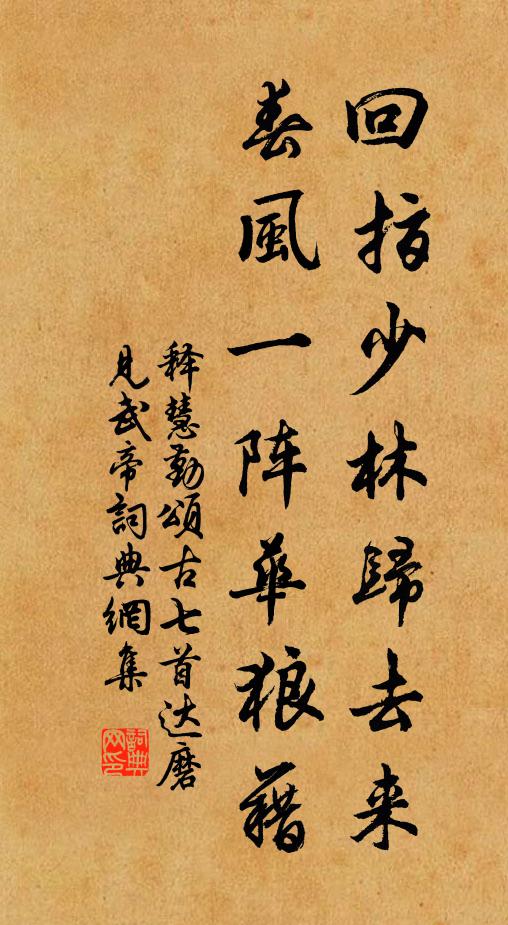 回指少林歸去来
春風一阵華狼藉
释慧勤頌古七首达磨
見武帝詞典網集
詞典网印